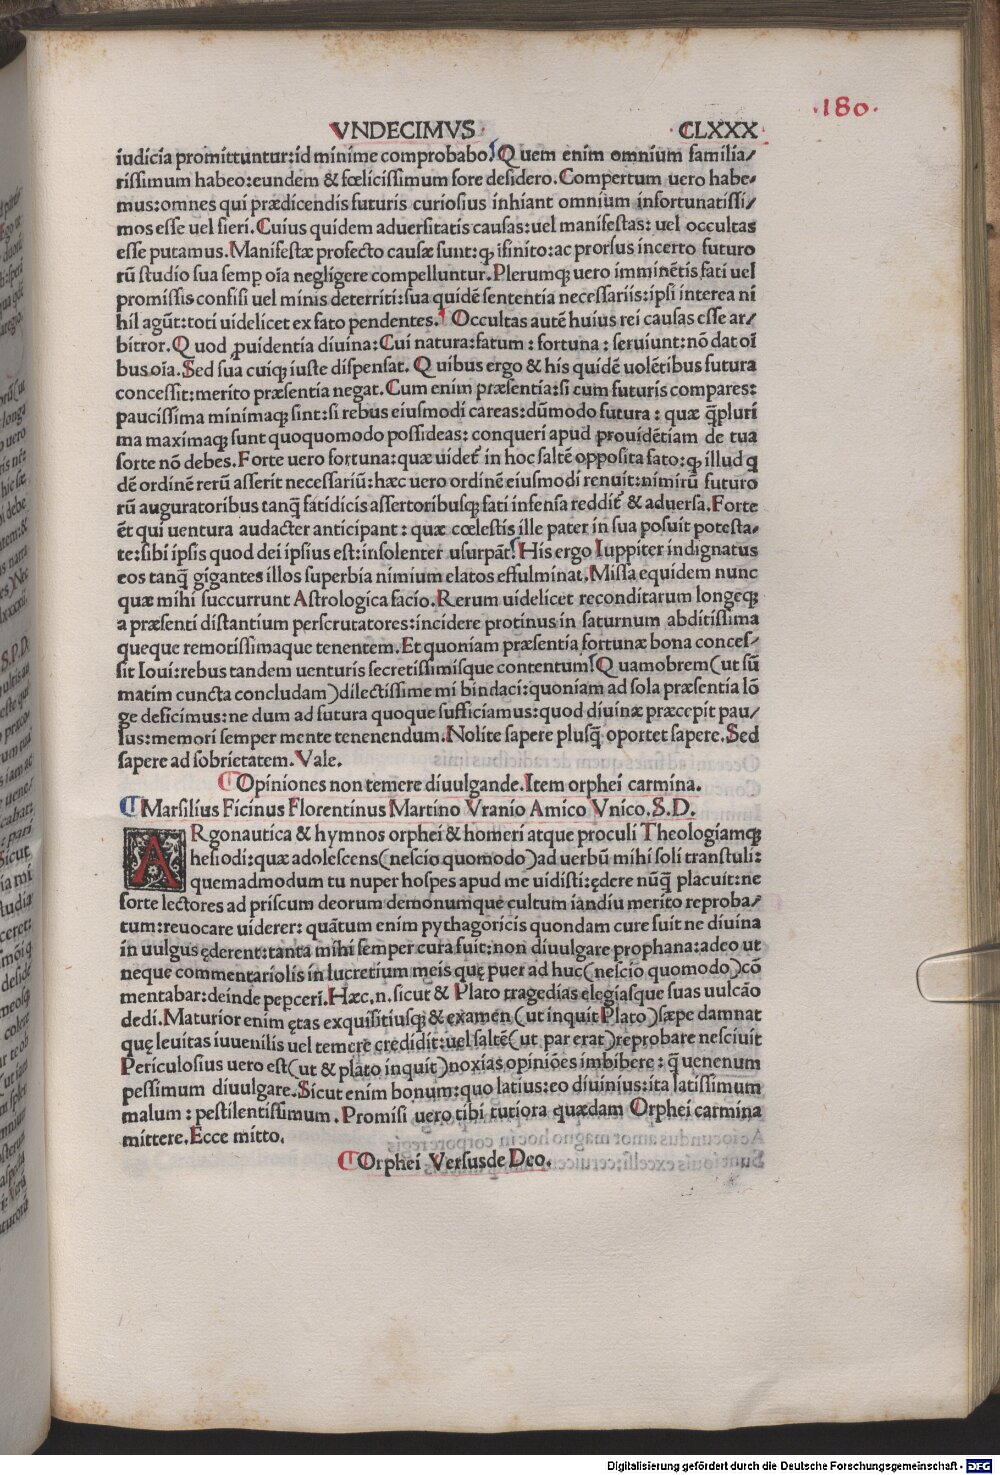 ·180·
VNDECIMVS· ·CLXXX·
iudicia promittuntur:id minime comprobabo. Quem enim omnium familia/
rissimum habeo:eundem & fœlicissimum fore desidero.Compertum uero habe-
mus:omnes qui prædicendis futuris curiosius inhiant omnium infortunatissi/
mos esse uel fieri.Cuius quidem aduersitatis causas:uel manifestas: uel occultas
esse putamus.Manifestæ profecto causæ sunt:ꝙ ifinito:ac prorsus incerto futuro
rū studio sua semꝑ oīa negligere compelluntur.Plerumqꝫ uero imminētis fati uel
promissis confisi uel minis deterriti:sua quidē sententia necessariis:ipsi interea ni
hil agūt:toti uidelicet ex fato pendentes. Occultas autē huius rei causas esse ar-
bitror.Quod ꝓuidentia diuina:Cui natura:fatum: fortuna: seruiunt:nō dat oī
bus oīa.Sed sua cuiqꝫ iuste dispensat. Quibus ergo & his quidē uolētibus futura
concessit:merito præsentia negat.Cum enim præsentia:si cum futuris compares:
paucissima minimaqꝫ sint:si rebus eiusmodi careas:dūmodo futura: quæ q̄pluri
ma maximaqꝫ sunt quoquomodo possideas: conqueri apud prouidētiam de tua
sorte nō debes.Forte uero fortuna:quæ uidet᷑ in hoc saltē opposita fato:ꝙ illud q
dē ordinē rerū asserit necessariū:hæc uero ordinē eiusmodi renuit:nimirū futuro
rū auguratoribus tanq̄ fatidicis assertoribusqꝫ fati infensa reddit᷑ & aduersa.Forte
ēt qui uentura audacter anticipant: quæ cœlestis ille pater in sua posuit potesta-
te:sibi ipsis quod dei ipsius est:insolenter usurpāt.His ergo Iuppiter indignatus
eos tanq̄ gigantes illos superbia nimium elatos effulminat.Missa equidem nunc
quæ mihi succurrunt Astrologica facio.Rerum uidelicet reconditarum longeqꝫ
a præsenti distantium perscrutatores:incidere protinus in saturnum abditissima
queque remotissimaque tenentem.Et quoniam præsentia fortunæ bona conces/
sit Ioui:rebus tandem uenturis secretissimisque contentum.Quamobrem(ut sū
matim cuncta concludam)dilectissime mi bindaci:quoniam ad sola præsentia lō
ge deficimus:ne dum ad futura quoque sufficiamus:quod diuinæ præcepit pau/
lus:memori semper mente tenenendum.Nolite sapere plusq̄ oportet sapere.Sed
sapere ad sobrietatem.Vale.
Opiniones non temere diuulgande.Item orphei carmina.
Marsilius Ficinus Florentinus Martino Vranio Amico Vnico.S.D.
ARgonautica & hymnos orphei & homeri atque proculi Theologiamqꝫ
hesiodi:quæ adolescens(nescio quomodo)ad uerbū mihi soli transtuli:
quemadmodum tu nuper hospes apud me uidisti:ędere nūq̄ placuit:ne
forte lectores ad priscum deorum demonumque cultum iandiu merito reproba/
tum:reuocare uiderer: quātum enim pythagoricis quondam cure fuit ne diuina
in uulgus ęderent:tanta mihi semper cura fuit:non diuulgare prophana:adeo ut
neque commentariolis in lucretium meis quę puer ad huc(nescio quomodo)cō
mentabar:deinde peꝑceri.Hæc.n.sicut & Plato tragedias elegiasque suas uulcāo
dedi.Maturior enim ętas exquisitiusqꝫ & examen(ut inquit Plato)sæpe damnat
quę leuitas iuuenilis uel temere credidit:uel saltē(ut par erat)reprobare nesciuit
Periculosius uero est(ut & plato inquit)noxias opiniōes imbibere: q̄ uenenum
pessimum diuulgare.Sicut enim bonum:quo latius:eo diuinius:ita latissimum
malum: pestilentissimum.Promisi uero tibi tutiora quædam Orphei carmina
mittere.Ecce mitto.
Orphei Versusde Deo.
Digitalisierung gefördert durch die Deutsche Forschungsgemeinschaft - DFG